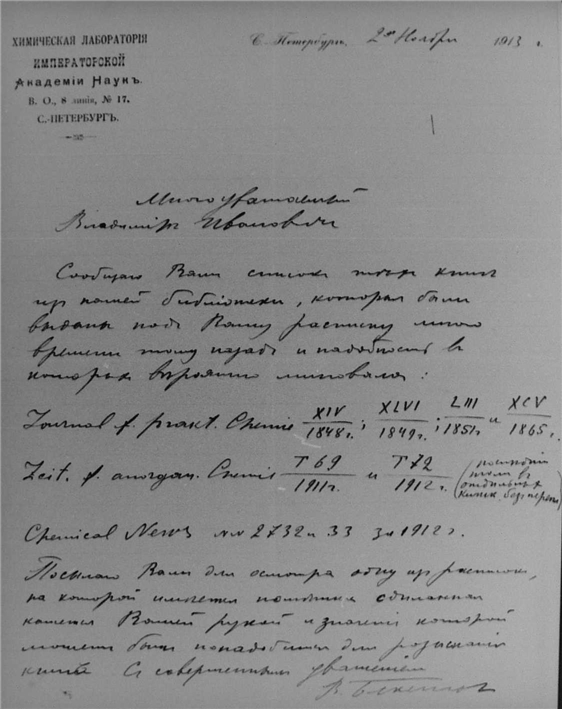 ХИМИЧЕСКАЯ ЛАБОРАТОРІЯ
ИМПЕРАТОРСКОЙ
Академіи Наукъ.
В. О., 8 линія, № 17.
С.-ПЕТЕРБУРГЪ.
С.-Петербургъ, 2 Ноября 1913 г.
Многоуважаемый
Владиміръ Ивановичъ
Сообщаю Вамъ списокъ тѣхъ книгъ
изъ нашей библіотеки, которыя были
выданы подъ Вашу расписку много
времени тому назадъ и надобность въ
которыхъ вѣроятно миновала:
Journal f. prakt. Chemie XIV/1848г.; XLVI/1849г.; LIII/1851г. и XCV/1865г.
Zeit. f. anorgan. Chemie Т 69/1911г. и Т 72/1912г. (послѣдній томъ въ отдѣльныхъ книж. безъ переп)
Chemical News №№ 2732 и 33 за 1912 г.
Посылаю Вамъ для осмотра одну изъ расписокъ,
на которой имѣется помѣтка сдѣланная
кажется Вашей рукой и значеніе которой
можетъ быть понадобится для розысканія
книгъ Съ совершеннымъ уваженіемъ
В. Бекетовъ